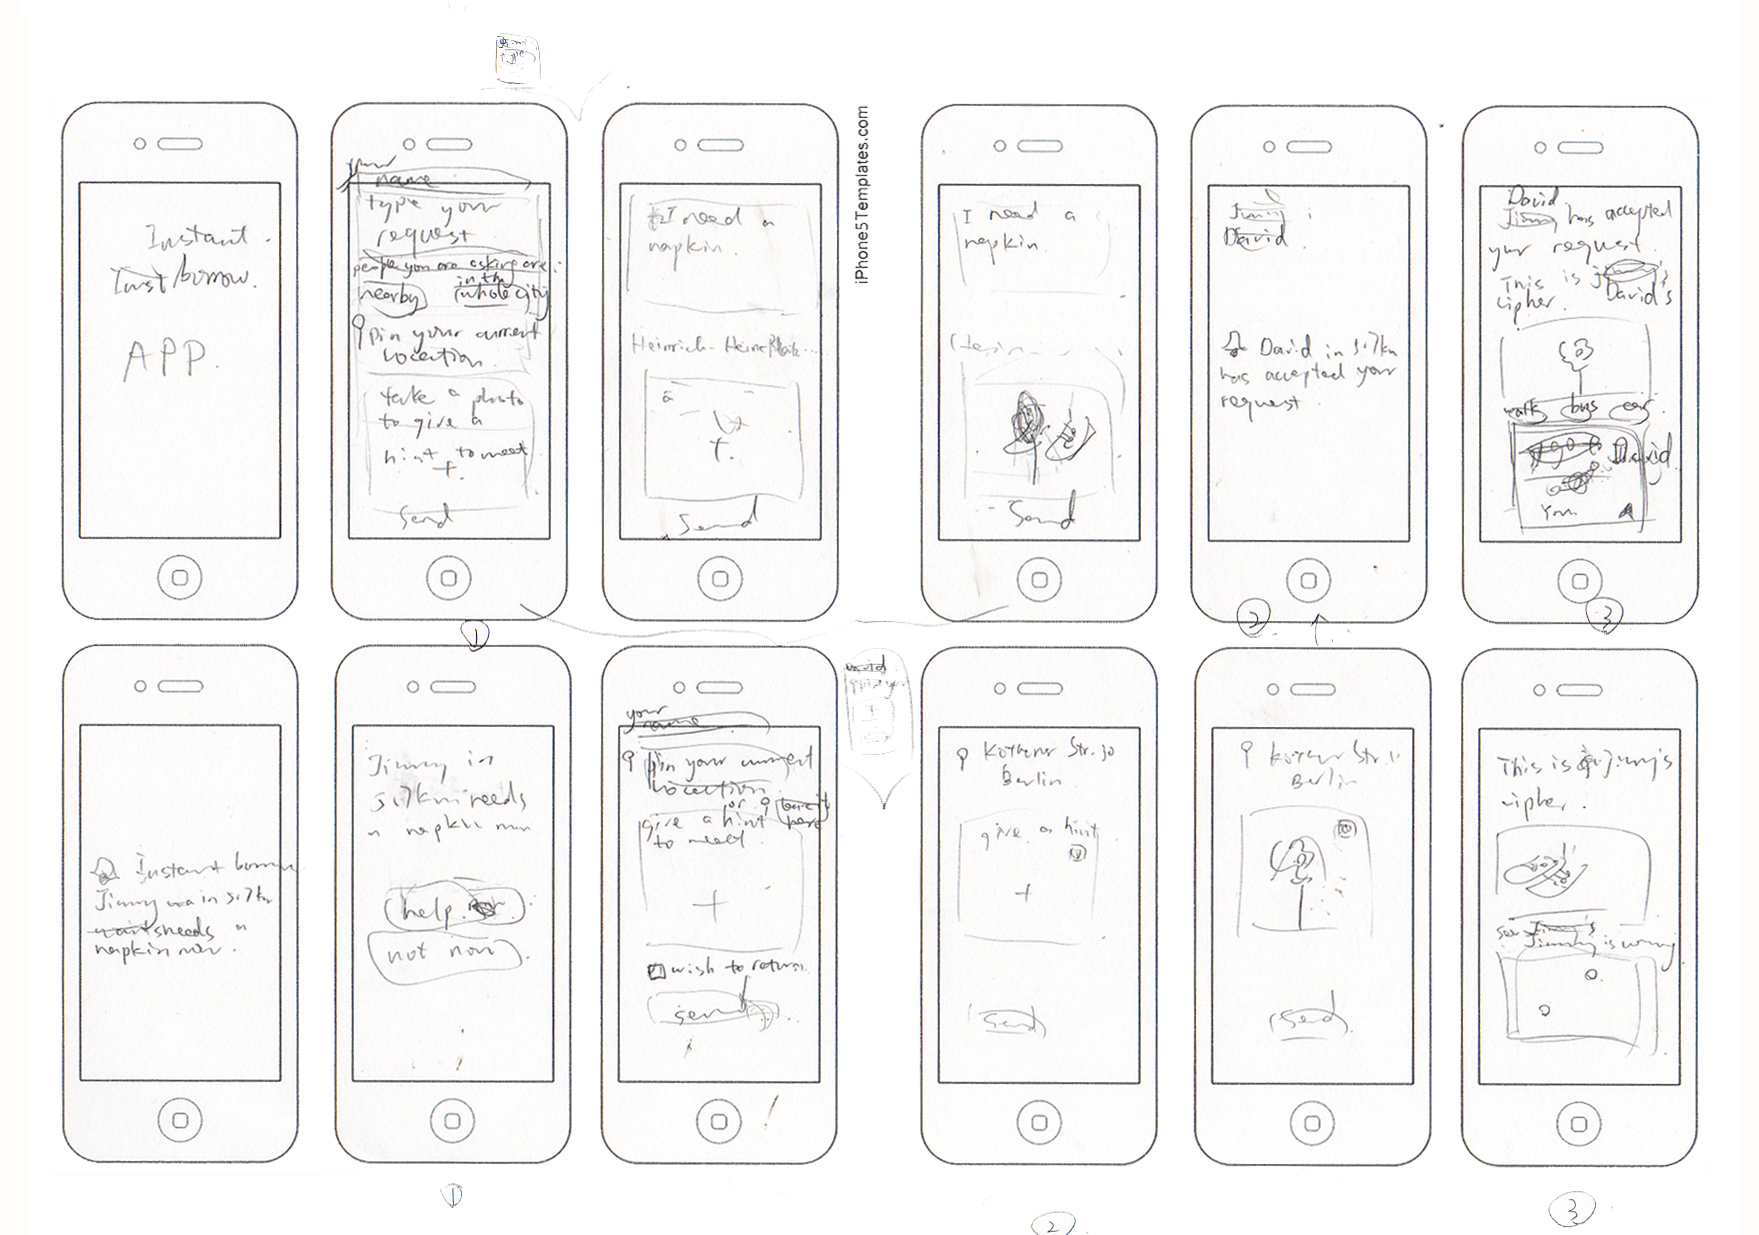 Instant
Inst/borrow.
APP.
your
name
type your
request
people you are asking are:
nearby
in the
whole city
Pin your current
location
take a photo
to give a
hint to meet
+
Send
I need a
napkin.
Heinrich-Heine Platz...
+
Send
iPhone5Templates.com
I need a
napkin.
Send
Jimmy
David
David in 3.7km
has accepted your
request
David
Jimmy has accepted
your request.
This is
David's
cipher.
walk bus car
David
You
1
2
3
Instant borrow
Jimmy in 3.7km
needs a
napkin now.
Jimmy in
3.7km needs
a napkin now
help.
not now
your
name
pin your current
location
or
give a hint
to meet
+
wish to return
send
David
+
Str. 10
Berlin
give a hint
+
Send
Str. 10
Berlin
Send
This is Jimmy's
cipher.
Jimmy is
1
2
3